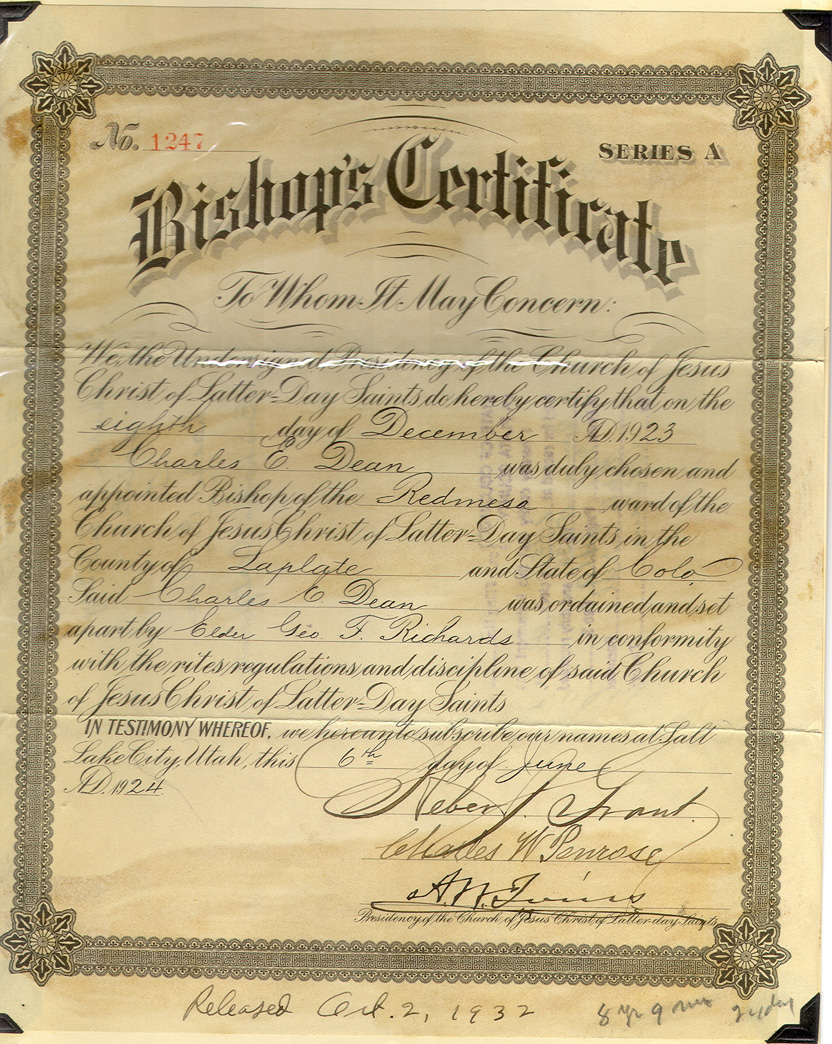 No. 1247
SERIES A
Bishop's Certificate
To Whom It May Concern:
We, the Undersigned Presidency of the Church of Jesus
Christ of Latter-Day Saints do hereby certify that on the
eighth day of December A.D. 1923
Charles E. Dean was duly chosen and
appointed Bishop of the Redmesa ward of the
Church of Jesus Christ of Latter-Day Saints in the
County of Laplate and State of Colo
Said Charles E Dean was ordained and set
apart by Elder Geo. F. Richards in conformity
with the rites regulations and discipline of said Church
of Jesus Christ of Latter-Day Saints
IN TESTIMONY WHEREOF, we hereunto subscribe our names at Salt
Lake City Utah, this 6th day of June
A.D. 1924
Heber J. Grant
Charles W Penrose
A. W. Ivins
Presidency of the Church of Jesus Christ of Latter-day Saints
Released Oct. 2, 1932 8 yr 9 mo 24 day